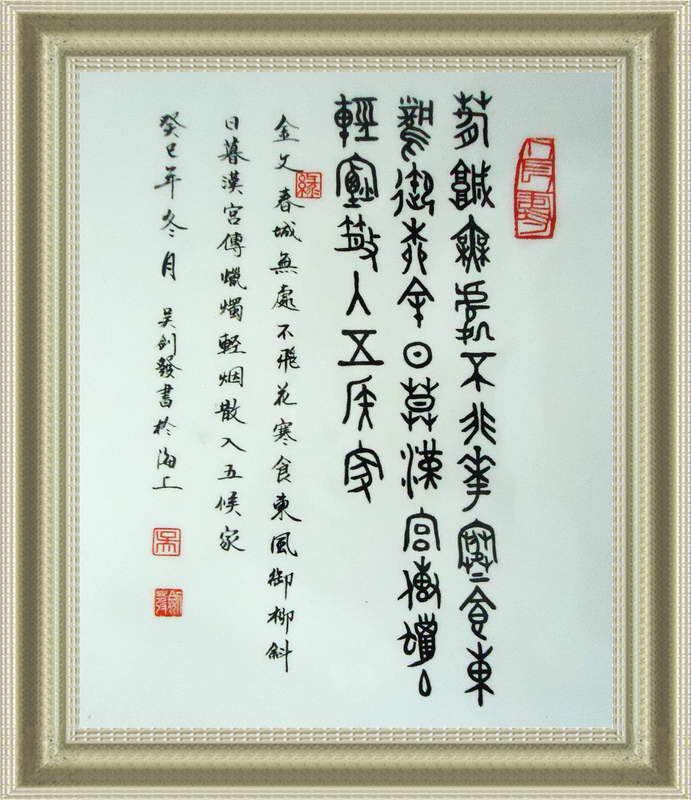 春城無處不非華寒食東
風御柳余日莫漢宮傳蠟主
輕煙散入五侯家
金文春城無處不飛花寒食東風御柳斜
日暮漢宮傳蠟燭輕烟散入五候家
癸巳年冬月 吴剑發書於海上
緣
吴